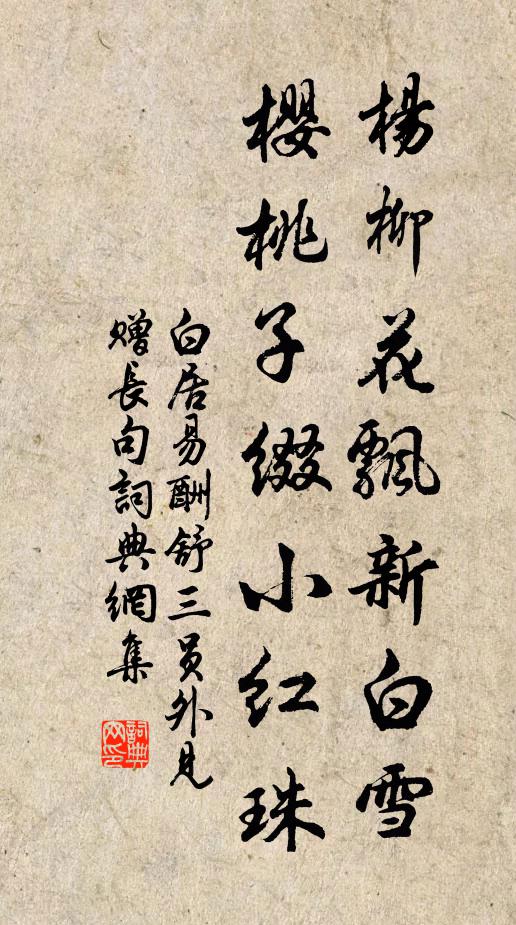 楊柳花飄新白雪
櫻桃子綴小紅珠
白居易酬舒三員外見
贈長句詞典網集
詞典
网印